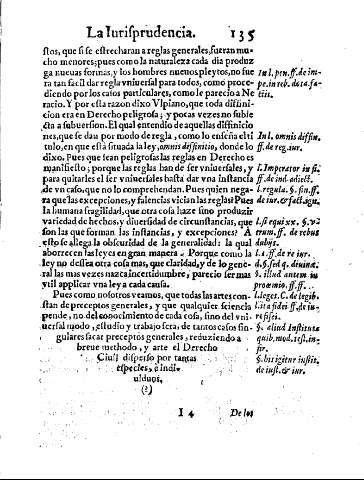 La Iurisprudencia. 135
stos, que si se estrecharan a reglas generales, fueran mu-
cho menores; pues como la naturaleza cada dia produz
ga nueuas formas, y los hombres nueuos pleytos, no fue
ra tan facil dar regla vniuersal para todos, como proce-
diendo por los casos particulares, como le parecio a Ne
racio. Y por esta razon dixo Vlpiano, que toda diffini-
cion era en Derecho peligrosa; y pocas vezes no subie
cta a subuersion. El qual entendio de aquellas diffinicio
nes, que se dan por modo de regla, como lo enseña el ti
tulo, en que està situada la ley, omnis diffinitio, donde lo
dixo. Pues que sean peligrosas las reglas en Derecho es
manifiesto, porque las reglas han de ser vniuersales, y
para quitarles el ser vniuersales basta dar vna instancia
de vn caso, que no lo comprehendan. Pues quien nega-
ra que las excepciones, y falencias vician las reglas? Pues
la humana fragilidad, que otra cosa haze sino produzir
variedad de hechos, y diuersidad de circunstancias, que
son las que forman las instancias, y excepciones? A
esto se allega la obscuridad de la generalidad: la qual
aborrecen las leyes en gran manera. Porque como la
ley no dessea otra cosa mas, que claridad, y de lo gene-
ral las mas vezes nazca incertidumbre, parecio ser mas
vtil applicar vna ley a cada causa.
Pues como nosotros veamos, que todas las artes con-
stan de preceptos generales, y que qualquier sciencia
pende, no del conocimiento de cada cosa, sino del vni-
uersal modo, estudio y trabajo sera, de tantos casos sin-
gulares sacar preceptos generales, reduziendo a
breue methodo, y arte el Derecho
Ciuil disperso por tantas
especies, e indi-
uiduos.
(?)
In l. pen. ff. de im-
pe. in reb. dota. fa-
ctis.
In l. omnis diffin.
ff. de reg. iur.
l. Imperator in fi.
ff. de ind. adiect.
l. regula. §. fin. ff.
de iur. & fact. ign.
dubijs.
l. 1. ff. de re iur.
§. illud autem in
proœmio. ff. ff.
l. leges. C. de legib.
§. aliud Instituta
quib. mod. test. in-
fir.
§. his igitur instit.
de iust. & iur.
I 4 De los